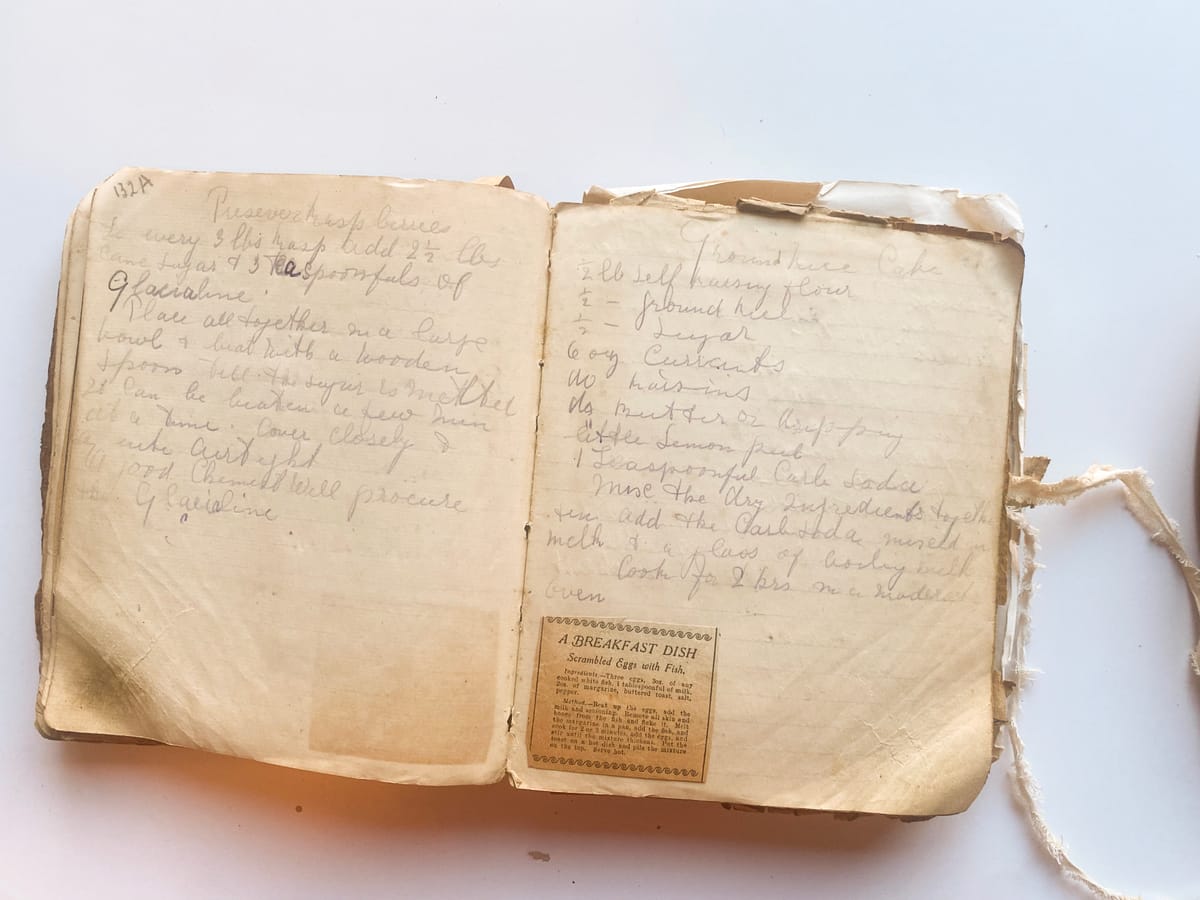 132A
Preserve Raspberries
To every 3 lbs Rasp add 2½ lbs
Cane Sugar & 3 teaspoonfuls of
Glacialine.
Place all together in a large
bowl & beat with a wooden
spoon till the sugar is melted
It can be beaten a few min
at a time. Cover closely &
quite airtight
A good Chemist will procure
the Glacialine
Ground Rice Cake
½ lb self raising flour
½ - ground rice
½ - Sugar
6 oz Currants
do raisins
do butter or dripping
little Lemon peel
1 Teaspoonful Carb Soda
Mix the dry Ingredients together
add the Carb Soda mixed in
milk & a glass of milk
Cook for 2 hrs in a moderate
oven
A BREAKFAST DISH
Scrambled Eggs with Fish.
Ingredients.—Three eggs, 3oz. of any
cooked white fish, 1 tablespoonful of milk,
2oz. of margarine, buttered toast, salt,
pepper.
Method.—Beat up the eggs, add the
milk and seasoning. Remove all skin and
bones from the fish and flake it. Melt
the margarine in a pan, add the fish, and
cook for 2 or 3 minutes, add the eggs, and
stir until the mixture thickens. Put the
toast on a hot dish and pile the mixture
on the top. Serve hot.